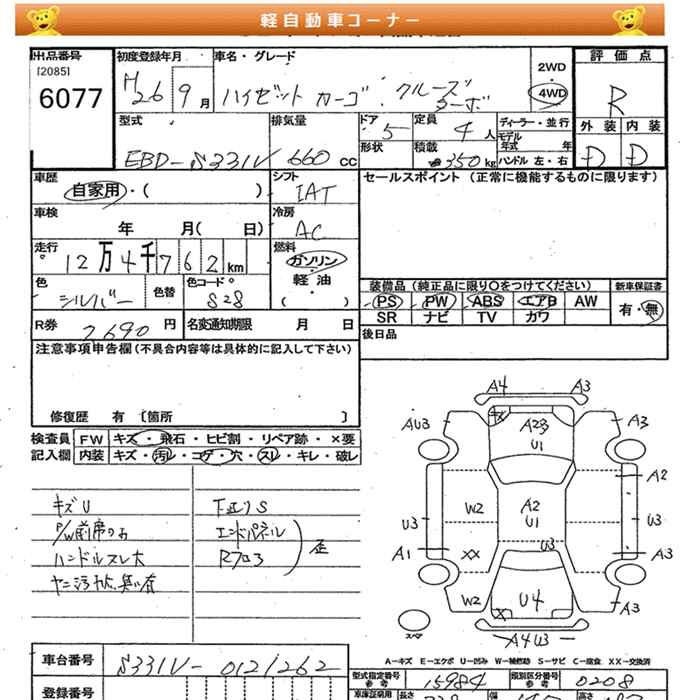 軽自動車コーナー
出品番号
[2085]
6077
初度登録年月
H26 9月
車名・グレード
ハイゼットカーゴ クルーズターボ
2WD
4WD
評価点
R
型式
EBD-S331V
排気量
660 cc
ドア
5
形状
定員
4人
積載
350kg
ディーラー・並行
モデル
年式 年
ハンドル 左・右
外装
内装
D
D
車歴
自家用・( )
シフト
IAT
セールスポイント (正常に機能するものに限ります)
車検
年 月( 日)
冷房
AC
走行
12万4千762km
燃料
ガソリン・
軽油・
( )
色
シルバー
色替
色コード
S28
装備品 (純正品に限り○をつけてください)
新車保証書
PS PW ABS エアB AW
SR ナビ TV カワ
有・無
R券
2690円
名変通知期限 月 日
後日品
注意事項申告欄 (不具合内容等は具体的に記入して下さい)
修復歴 有 〔箇所 〕
検査員
記入欄
FW キズ・飛石・ヒビ割・リペア跡・×要
内装 キズ・汚レ・コゲ・穴・スレ・キレ・破レ
キズU
P/W前席のみ
ハンドルスレ大
下廻りS
エンドパネル
Rフロ3
歪
A4
A3
AU3
A23
U1
A3
A2
W2
A2
U1
U3
U3
A1
XX
U3
A3
W2
U4
X
A3
A4U3
スペア
A-キズ E-エクボ U-凹み W-補修跡 S-サビ C-腐食 XX-交換済
車台番号
S331V-0121262
型式指定番号
参考
15984
類別区分番号
参考
0208
登録番号
車庫証明用
参考
長さ
幅
高さ